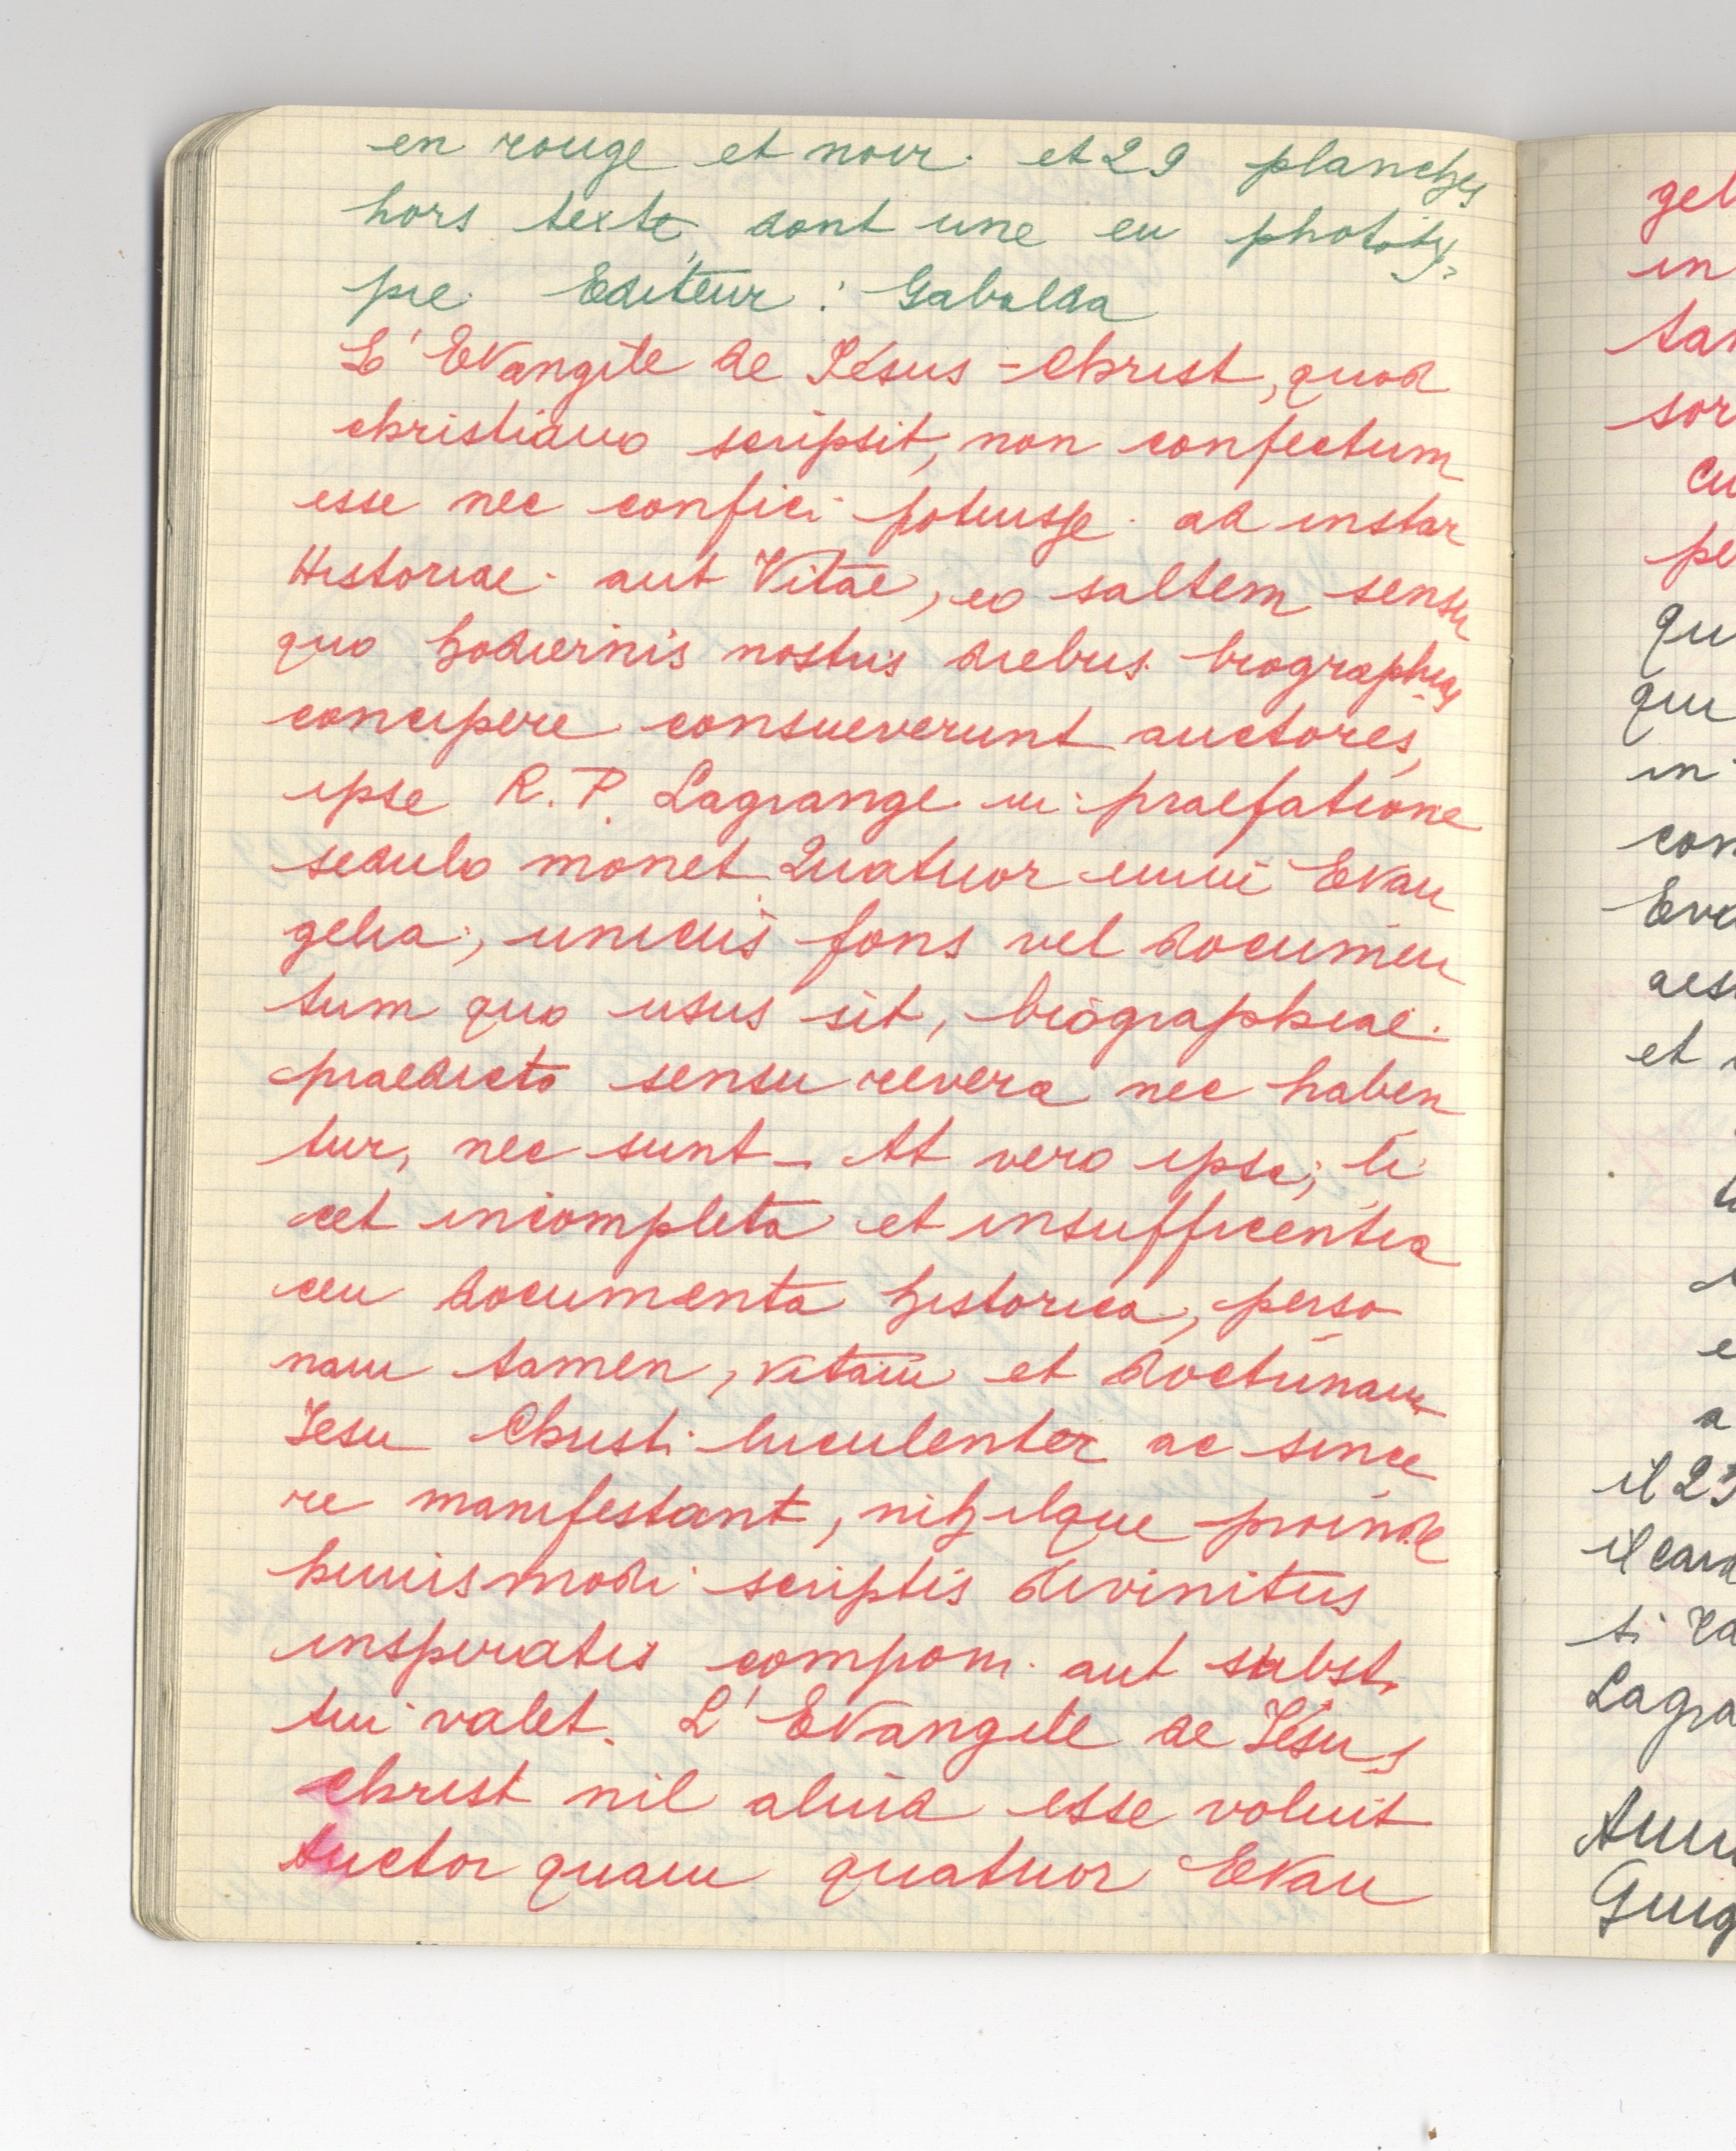 en rouge et noir. et 29 planches
hors texte, dont une en phototy-
pie. Editeur : Gabalda
L'Evangile de Jésus-Christ, quod
christiano scripsit, non confectum
esse nec confici potuisse ad instar
Historiae aut Vitae, eo saltem sensu
quo hodiernis nostris diebus biographias
concipere consueverunt auctores,
ipse R. P. Lagrange in praefatione
sedulo monet. Quatuor enim Evan
gelia, unicus fons vel documen
tum quo usus sit, biographiae
praedicto sensu revera nec haben
tur, nec sunt - At vero ipsa, li
cet incompleta et insufficentia
ceu documenta historica, perso
nam tamen, vitam et doctrinam
Jesu Christi luculenter ac since
re manifestant, nihilque proinde
huiusmodi scriptis divinitus
inspiratis componi aut substi
tui valet. L'Evangile de Jésus
Christ nil aliud esse voluit
Auctor quam quatuor Evan
gel
in
tan
sor
cu
pe
qu
qui
in
con
Eva
aes
et
e
a
il 29
il card
si ra
Lagra
Guig